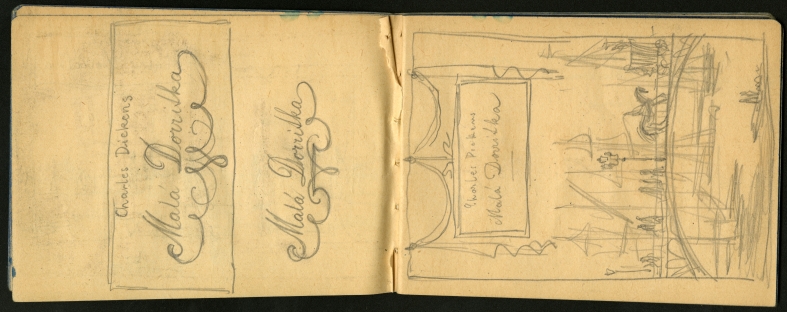 Charles Dickens
Malá Dorritka
Malá Dorritka
Charles Dickens
Malá Dorritka